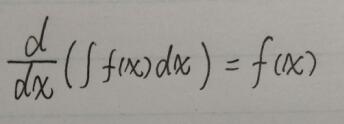 d/dx (∫ f(x) dx) = f(x)